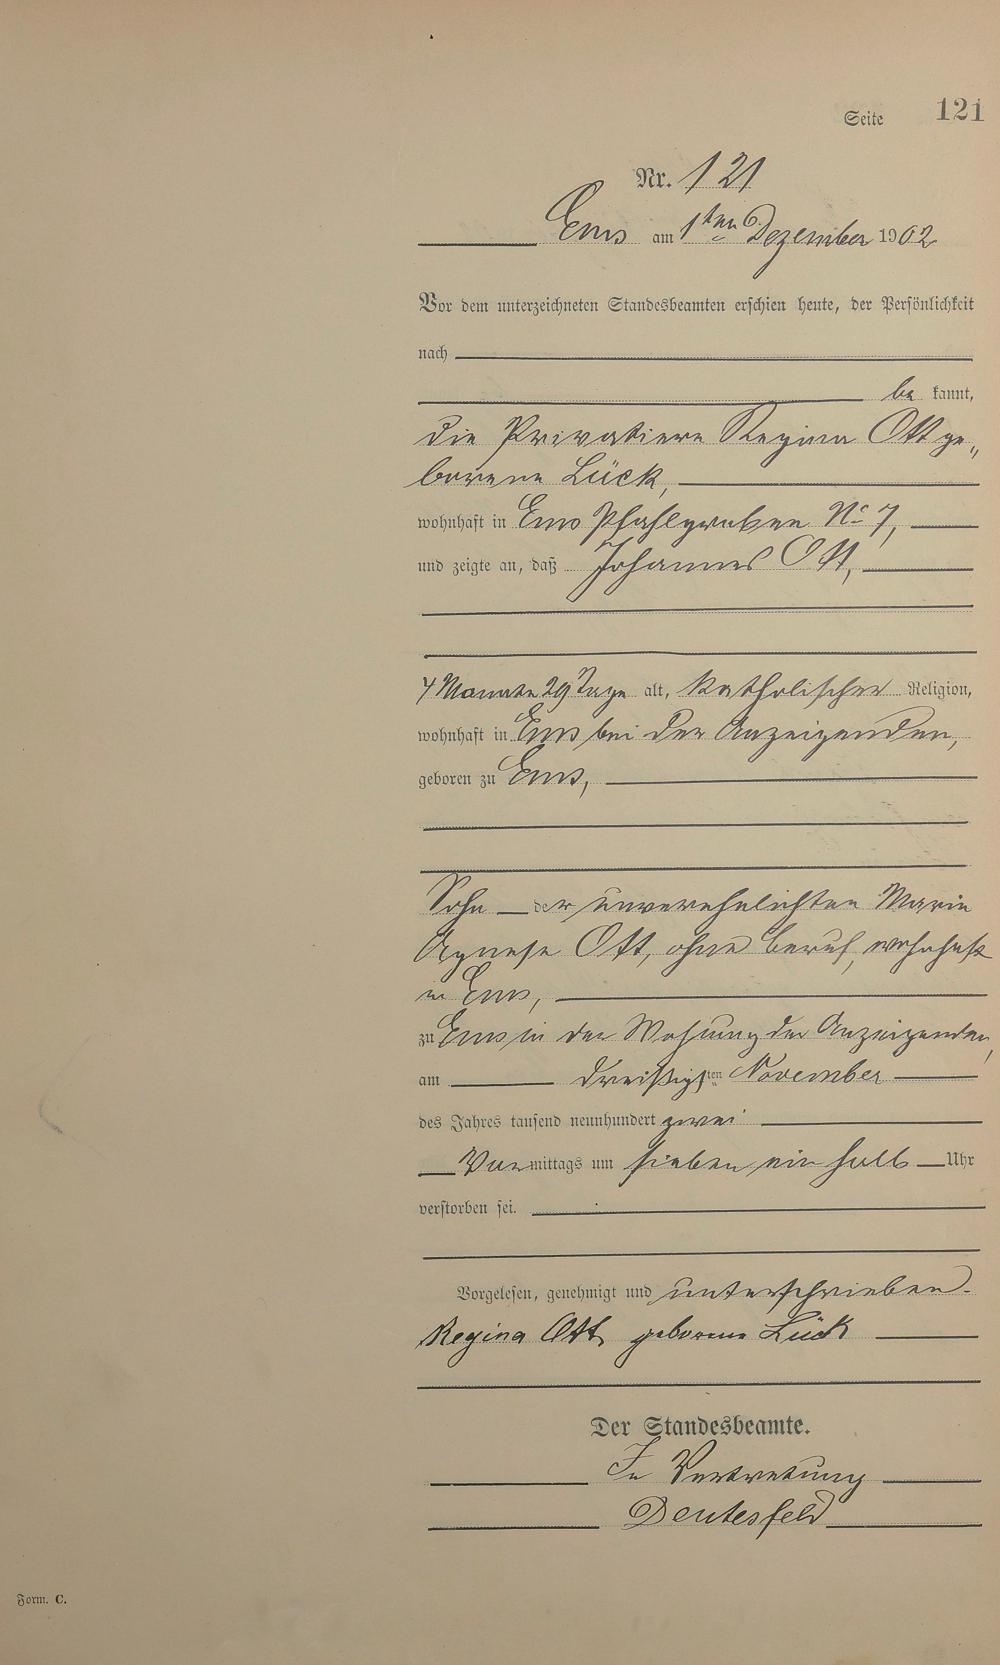 Seite 121
Nr. 121
Ems am 1ten Dezember 1902
Vor dem unterzeichneten Standesbeamten erschien heute, der Persönlichkeit
nach
be kannt,
die Privatiere Regina Ott ge„
borene Lück,
wohnhaft in Ems Pfahlgraben No 7,
und zeigte an, daß Johannes Ott,
7 Monate 29 Tage alt, katholischer Religion,
wohnhaft in Ems bei der Anzeigenden,
geboren zu Ems,
Sohn der unverehelichten Maria
Agnese Ott, ohne Beruf, wohnhaft
in Ems,
zu Ems in der Wohnung der Anzeigenden,
am dreißigsten November
des Jahres tausend neunhundert zwei
Vormittags um sieben ein halb Uhr
verstorben sei.
Vorgelesen, genehmigt und unterschrieben.
Regina Ott geborene Lück
Der Standesbeamte.
In Vertretung
Deutesfeld
Form. C.